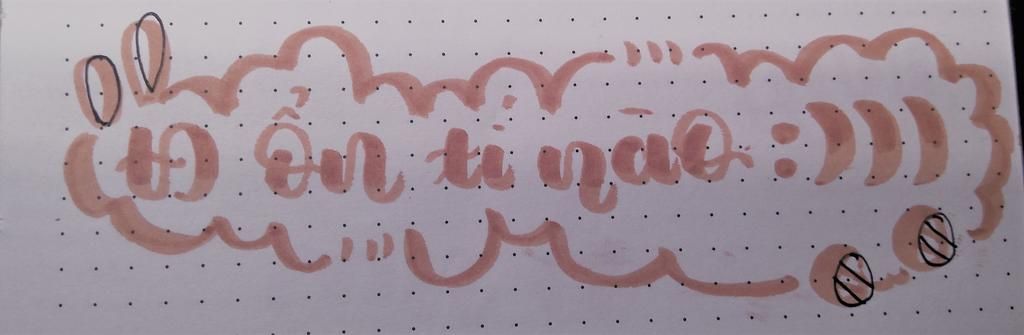 Đ ổn tí nào :)))